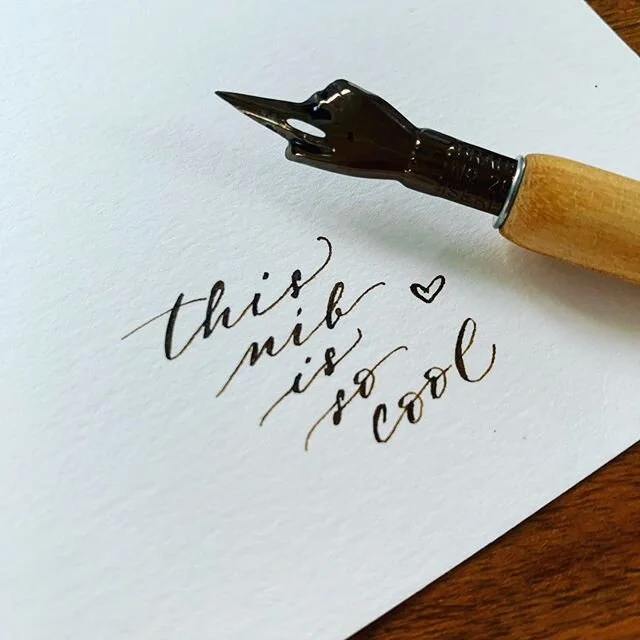 this
nib
is
so
cool